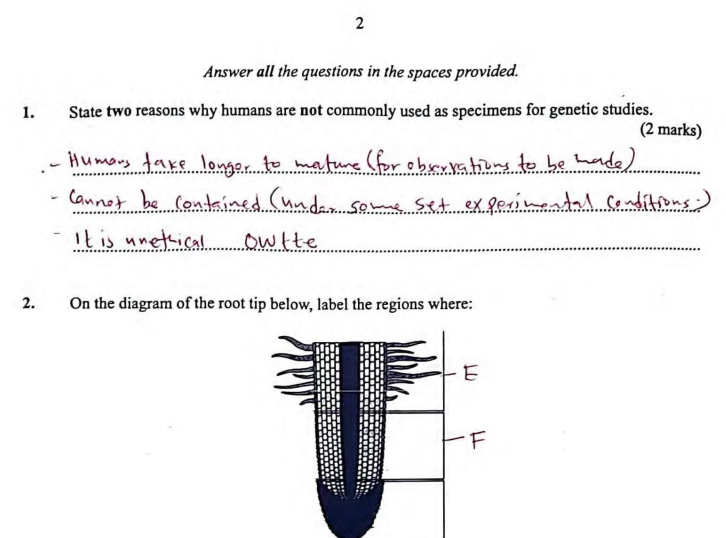 2
Answer all the questions in the spaces provided.
1. State two reasons why humans are not commonly used as specimens for genetic studies.
(2 marks)
- Humans take longer to mature (for observations to be made)
- Cannot be contained (under some set experimental conditions.)
- It is unethical OWTTE
2. On the diagram of the root tip below, label the regions where:
- E
- F